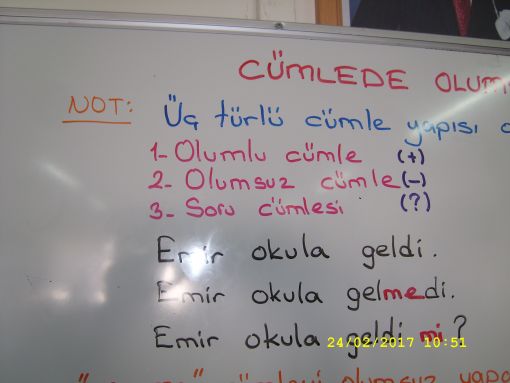 CÜMLEDE OLUM
NOT: Üç türlü cümle yapısı
1- Olumlu cümle (+)
2- Olumsuz cümle (-)
3- Soru cümlesi (?)
Emir okula geldi.
Emir okula gelmedi.
Emir okula geldi mi?
24/02/2017 10:51
cümleyi olumsuz yapa